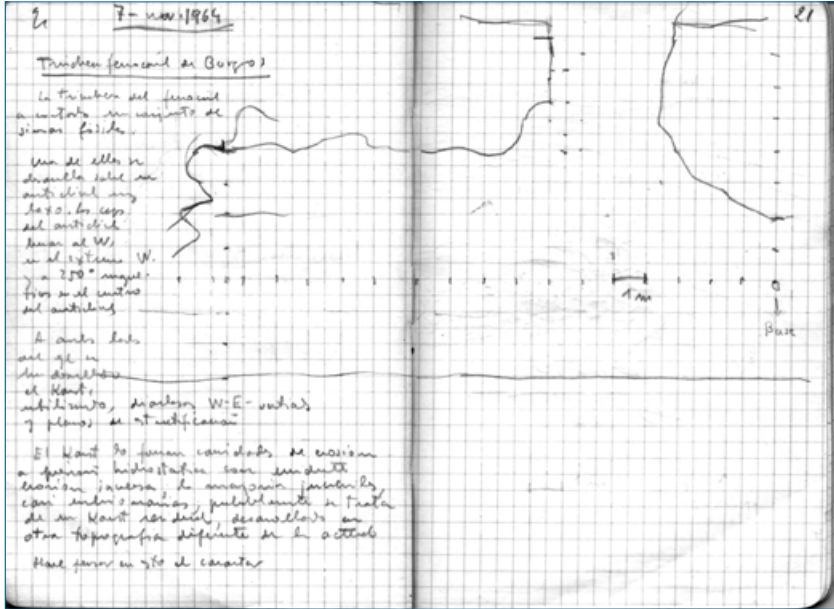 7-nov-1964
21
Trinchera ferrocarril de Burgos
La trinchera del ferrocarril
a cortado un conjunto de
simas fósiles.
Una de ellas se
desarrolla sobre un
anticlinal muy
laxo. Las capas
del anticlinal
buzan al W.
en el extremo W.
y a 250° magné-
ticos en el centro
del anticlinal
A ambos lados
del eje se
ha desarrollado
el Karst,
utilizando, diaclasas W-E-
y planos de estratificación
El Karst lo forman cavidades de erosión
a presión hidrostática con
erosión inversa, la mayoría juveniles,
casi embrionarias, probablemente se trata
de un Karst senil, desarrollado en
otra topografía diferente de la actual
Hace pensar en esto el caracter
1 m
0
Base